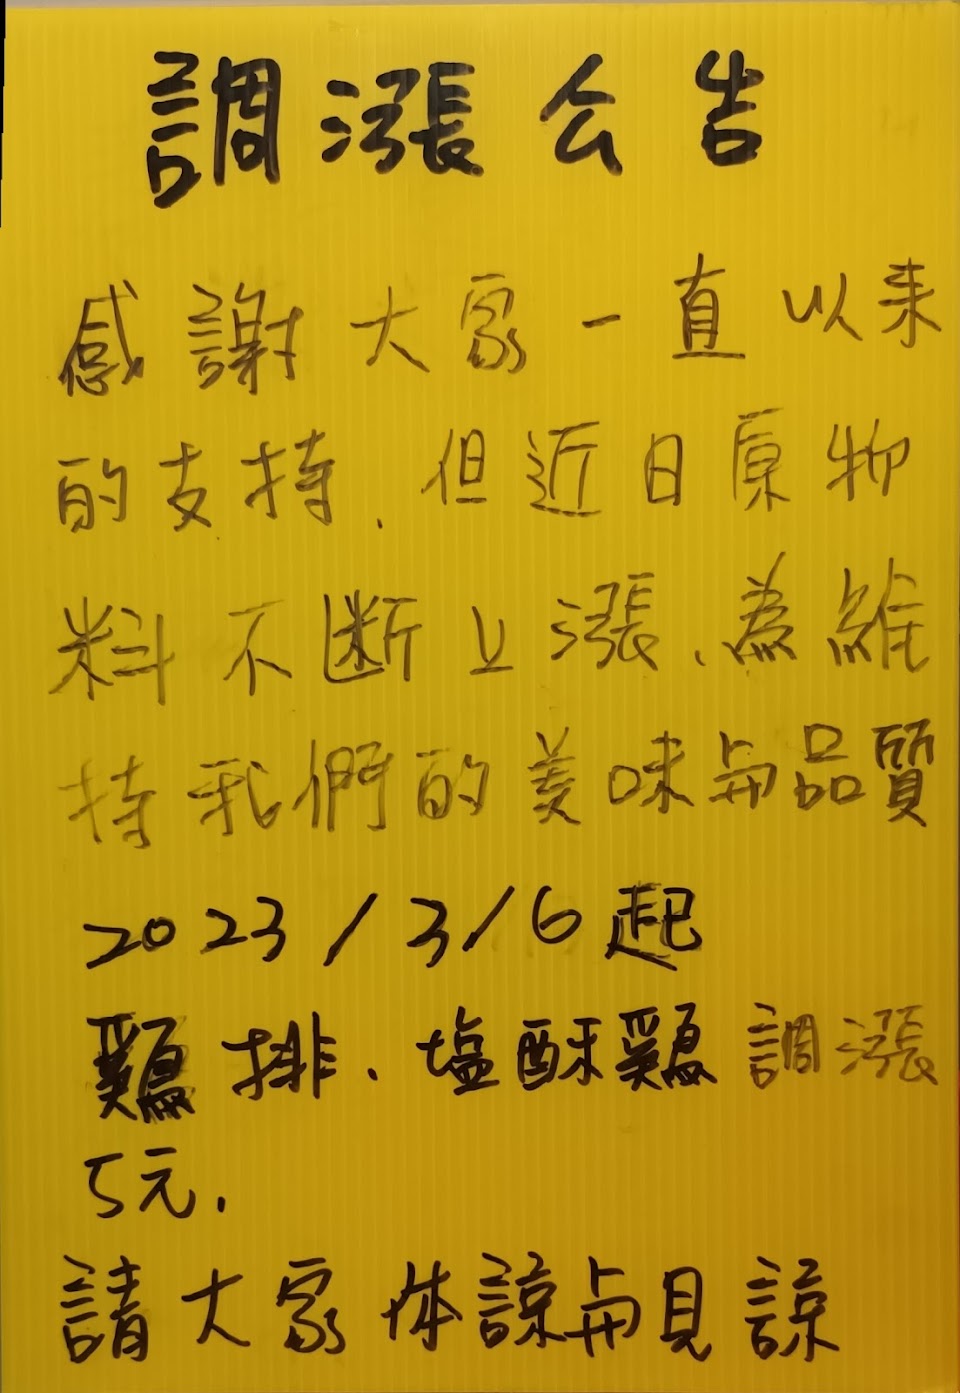 調漲公告
感謝大家一直以來
的支持.但近日原物
料不斷上漲.為維
持我們的美味与品質
2023/3/6起
鷄排.塩酥鷄調漲
5元.
請大家体諒与見諒